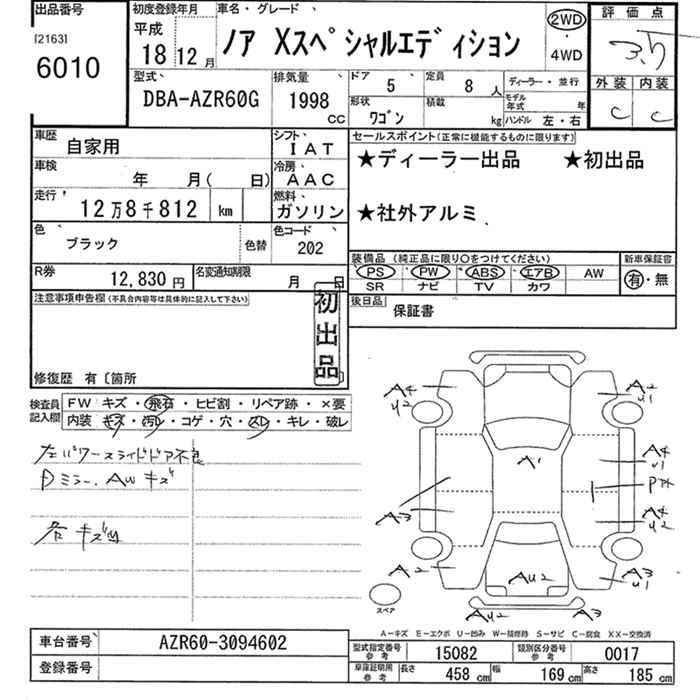 出品番号
[2163]
6010
初度登録年月
平成
18 12 月
車名・グレード
ノア Xスペシャルエディション
2WD
4WD
評価点
3.5
外装 内装
C C
型式
DBA-AZR60G
排気量
1998
CC
ドア
5
定員
8 人
形状
ワゴン
積載
kg
ディーラー・並行
モデル年式 年
ハンドル 左・右
車歴
自家用
シフト
IAT
車検
年 月( 日)
冷房
AAC
走行
12万8千812 km
燃料
ガソリン
色
ブラック
色替
色コード
202
R券
12,830 円
名変通知期限
月 日
セールスポイント(正常に機能するものに限ります)
★ディーラー出品 ★初出品
★社外アルミ
装備品 (純正品に限り○をつけてください)
PS PW ABS エアB AW
SR ナビ TV カワ
新車保証書
有・無
後日品
保証書
注意事項申告欄(不具合内容等は具体的に記入して下さい)
初出品
修復歴 有〔箇所
検査員記入欄
FW キズ・飛石・ヒビ割・リペア跡・×要
内装 キズ・汚レ・コゲ・穴・スレ・キレ・破レ
左パワースライドドア不良
Dミラー、AWキズ
A4
U2
A2
U1
A1
A4
U1
A3
A4
U2
A2
AU2
A3
U1
AU2
A3
スペア
A-キズ E-エクボ U-凹み W-補修跡 S-サビ C-腐食 XX-交換済
車台番号
AZR60-3094602
登録番号
型式指定番号
参考
15082
類別区分番号
参考
0017
車庫証明用
参考
長さ 458 cm 幅 169 cm 高さ 185 cm